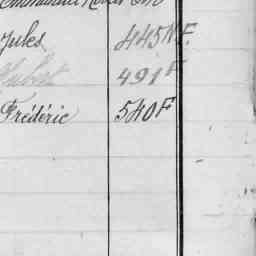 Jules 445 N F.
Hubert 491 F
Frédéric 540 F